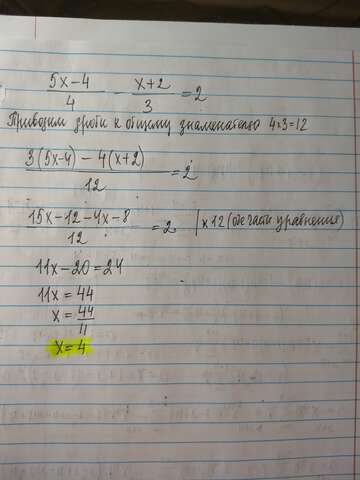 (5x-4)/4 - (x+2)/3 = 2
Приводим дроби к общему знаменателю 4×3=12
(3(5x-4) - 4(x+2))/12 = 2
(15x-12-4x-8)/12 = 2 | x 12 (обе части уравнения)
11x-20=24
11x = 44
x = 44/11
x = 4